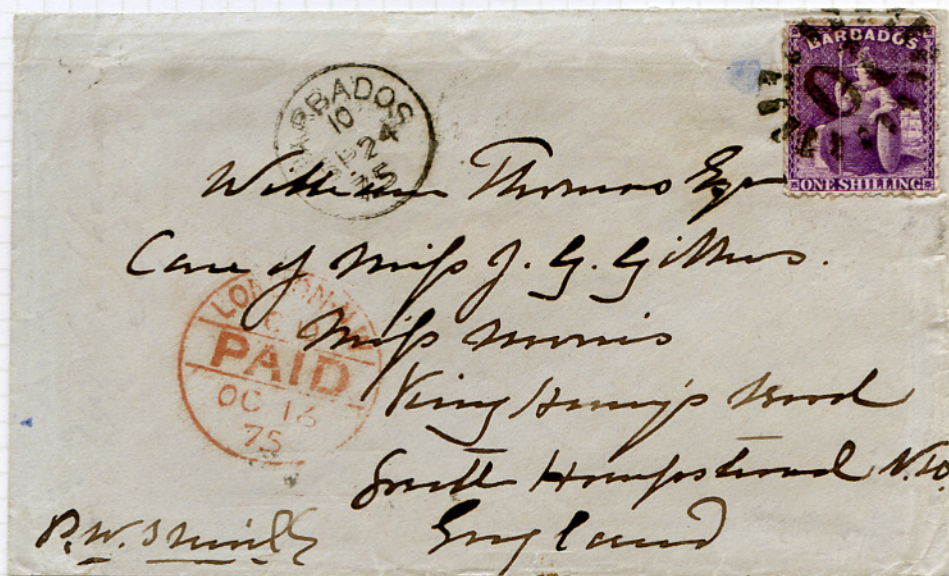 BARBADOS
ONE SHILLING
BARBADOS
10
SP 24
75
William Thomas Esqr
Care of Miss J. G. Githens.
Miss Morris
King Henry's Road
South Hampstead N.W.
England
LONDON-N.W
PAID
OC 13
75